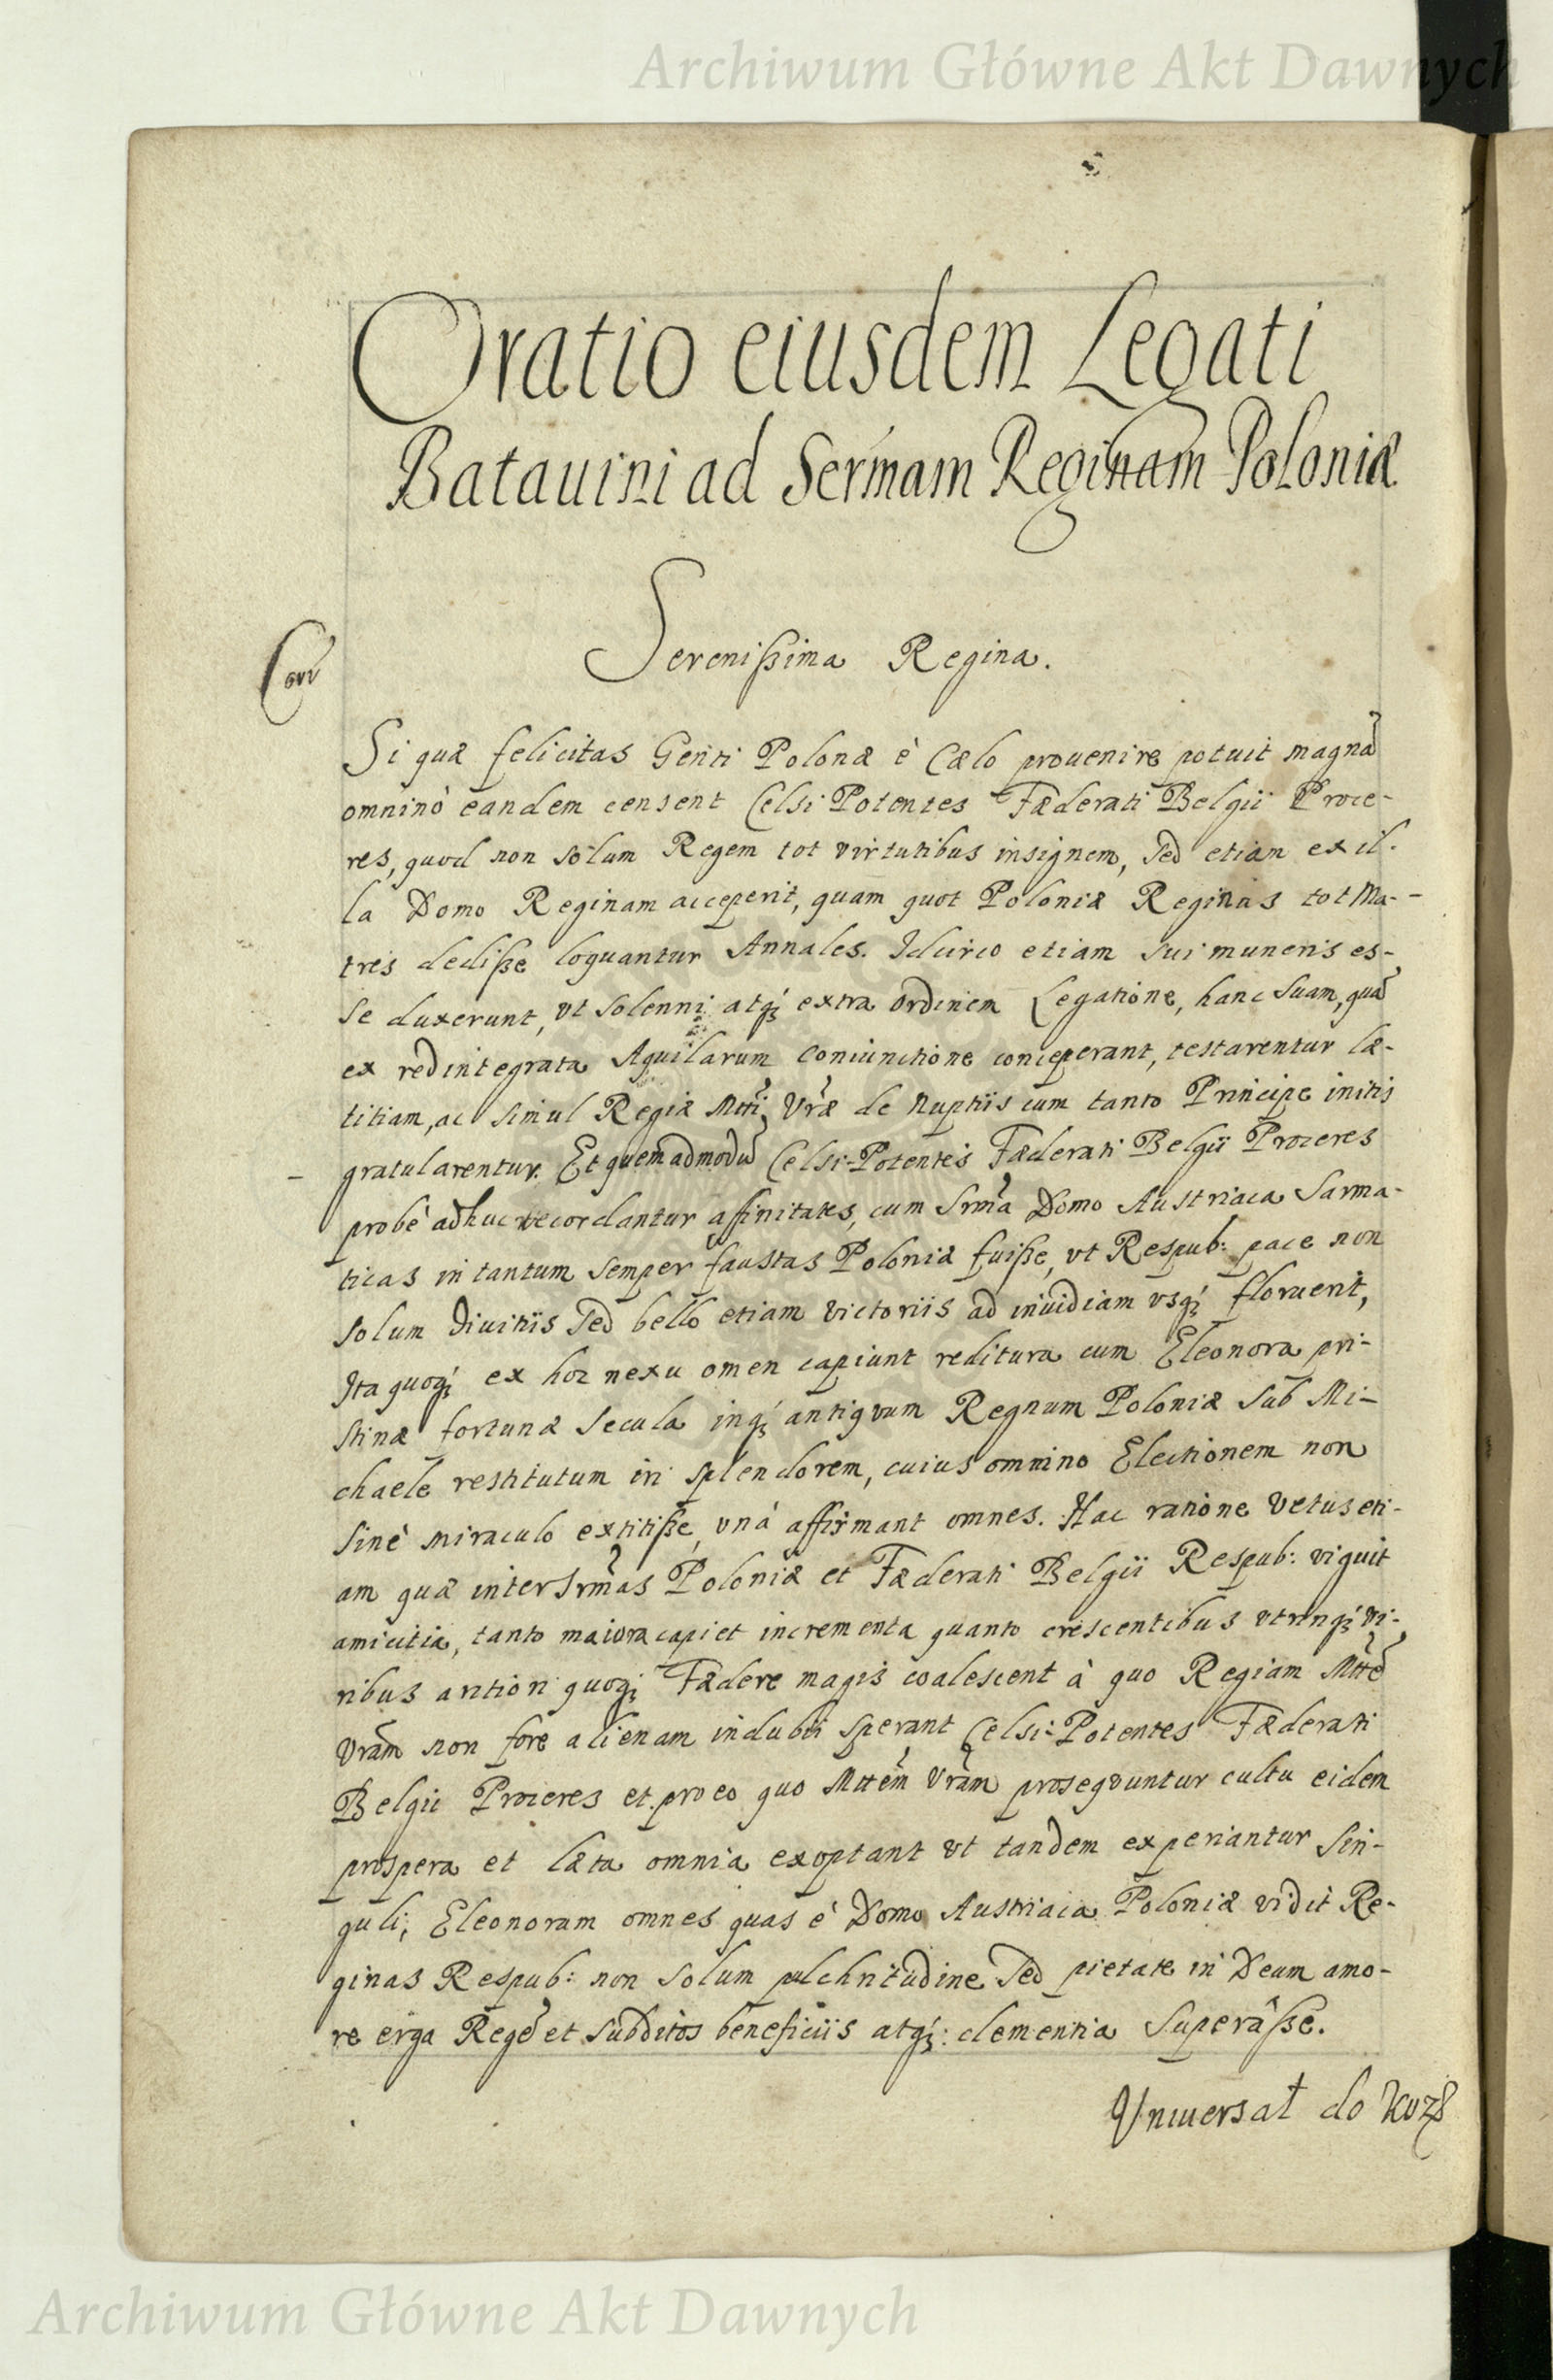 Archiwum Główne Akt Dawnych
Oratio eiusdem Legati
Batauini ad Serm̃am Reginam Poloniæ
Serenißima Regina.
Corr
Si quæ felicitas Genti Polonæ è Cælo prouenire potuit magnã
omninò eandem censent Celsi Potentes Fæderati Belgii Proce-
res, quod non solum Regem tot virtutibus insignem, sed etiam ex il-
la Domo Reginam acceperit, quam quot Poloniæ Reginas tot Ma-
tres dediße loquantur Annales. Idcirco etiam sui muneris es-
se duxerunt, vt solenni atq; extra ordinem Legatione, hanc suam, quã
ex redintegrata Aquilarum Coniunctione conceperant, testarentur læ-
titiam, ac simul Regiæ Mtti Vræ de Nuptiis cum tanto Principe initis
gratularentur. Et quemadmodũ Celsi-Potentes Fæderati Belgii Proceres
probè adhuc recordantur affinitates, cum Srm̃a Domo Austriaca Sarma-
ticas in tantum semper faustas Poloniæ fuiße, vt Respub: pace non
solum diuitiis sed bello etiam victoriis ad inuidiam vsq; floruerit,
Ita quoq; ex hoc nexu omen capiunt reditura cum Eleonora pri-
stinæ fortunæ secula inq; antiquum Regnum Poloniæ sub Mi-
chaele restitutum iri splendorem, cuius omnino Electionem non
sinè miraculo extitiße, vnà affirmant omnes. Hac ratione vetus eti-
am quæ inter Srm̃as Poloniæ et Fæderati Belgii Respub: viguit
amicitia, tanto maiora capiet incrementa quanto crescentibus vtrinq; vi-
ribus antiori quoq; Fædere magis coalescent à quo Regiam Mttẽ
Vram̃ non fore alienam indubii sperant Celsi-Potentes Fæderati
Belgii Proceres et pro eo quo Mttem̃ Vram̃ prosequuntur cultu eidem
prospera et læta omnia exoptant vt tandem experiantur sin-
guli, Eleonoram omnes quas è Domo Austriaca Poloniæ vidit Re-
ginas Respub: non solum pulchritudine sed pietate in Deum amo-
re erga Regẽ et subditos beneficiis atq; clementia superâße.
Vniuersał do
Archiwum Główne Akt Dawnych